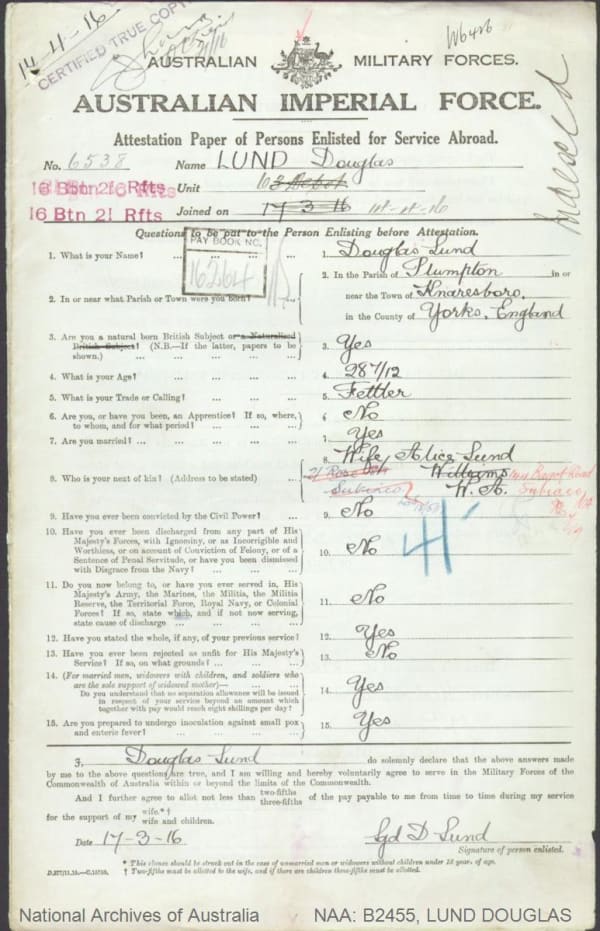 14-4-16
CERTIFIED TRUE COPY
W6426
AUSTRALIAN MILITARY FORCES.
AUSTRALIAN IMPERIAL FORCE.
Indexed
Attestation Paper of Persons Enlisted for Service Abroad.
No. 6538 Name LUND Douglas
16 Bton 21 Rfts Unit 63 Depot
16 Btn 21 Rfts Joined on 17-3-16
Questions to be put to the Person Enlisting before Attestation.
PAY BOOK NO.
1. What is your Name? ... ... ... 1. Douglas Lund
2. In or near what Parish or Town were you born? ... 2. In the Parish of Plumpton in or
near the Town of Knaresboro,
in the County of Yorks, England
3. Are you a natural born British Subject or a Naturalised
British Subject? (N.B.—If the latter, papers to be
shown.) ... ... ... ... 3. Yes
4. What is your Age? ... ... ... 4. 28 7/12
5. What is your Trade or Calling? ... ... ... 5. Fettler
6. Are you, or have you been, an Apprentice? If so, where,
to whom, and for what period? ... ... ... 6 No
7. Are you married? ... ... ... ... 7. Yes
8. Who is your next of kin? (Address to be stated) ... 8. Wife Alice Lund
Williams
Subiaco W. A. Subiaco
9. Have you ever been convicted by the Civil Power? ... 9. No
10. Have you ever been discharged from any part of His
Majesty's Forces, with Ignominy, or as Incorrigible and
Worthless, or on account of Conviction of Felony, or of a
Sentence of Penal Servitude, or have you been dismissed
with Disgrace from the Navy? ... ... ... 10. No
11. Do you now belong to, or have you ever served in, His
Majesty's Army, the Marines, the Militia, the Militia
Reserve, the Territorial Force, Royal Navy, or Colonial
Forces? If so, state which, and if not now serving,
state cause of discharge ... ... ... 11. No
12. Have you stated the whole, if any, of your previous service? 12. Yes
13. Have you ever been rejected as unfit for His Majesty's
Service? If so, on what grounds? ... ... ... 13. No
14. (For married men, widowers with children, and soldiers who
are the sole support of widowed mother)— ... ...
Do you understand that no separation allowance will be issued
in respect of your service beyond an amount which
together with pay would reach eight shillings per day? 14. Yes
15. Are you prepared to undergo inoculation against small pox
and enteric fever? ... ... ... 15. Yes
I, Douglas Lund do solemnly declare that the above answers made
by me to the above questions are true, and I am willing and hereby voluntarily agree to serve in the Military Forces of the
Commonwealth of Australia within or beyond the limits of the Commonwealth.
And I further agree to allot not less than two-fifths three-fifths of the pay payable to me from time to time during my service
for the support of my wife.*† wife and children.
Date 17-3-16 Sgd D Lund
Signature of person enlisted.
* This clause should be struck out in the case of unmarried men or widowers without children under 18 year. of age.
† Two-fifths must be allotted to the wife, and if there are children three-fifths must be allotted.
National Archives of Australia NAA: B2455, LUND DOUGLAS